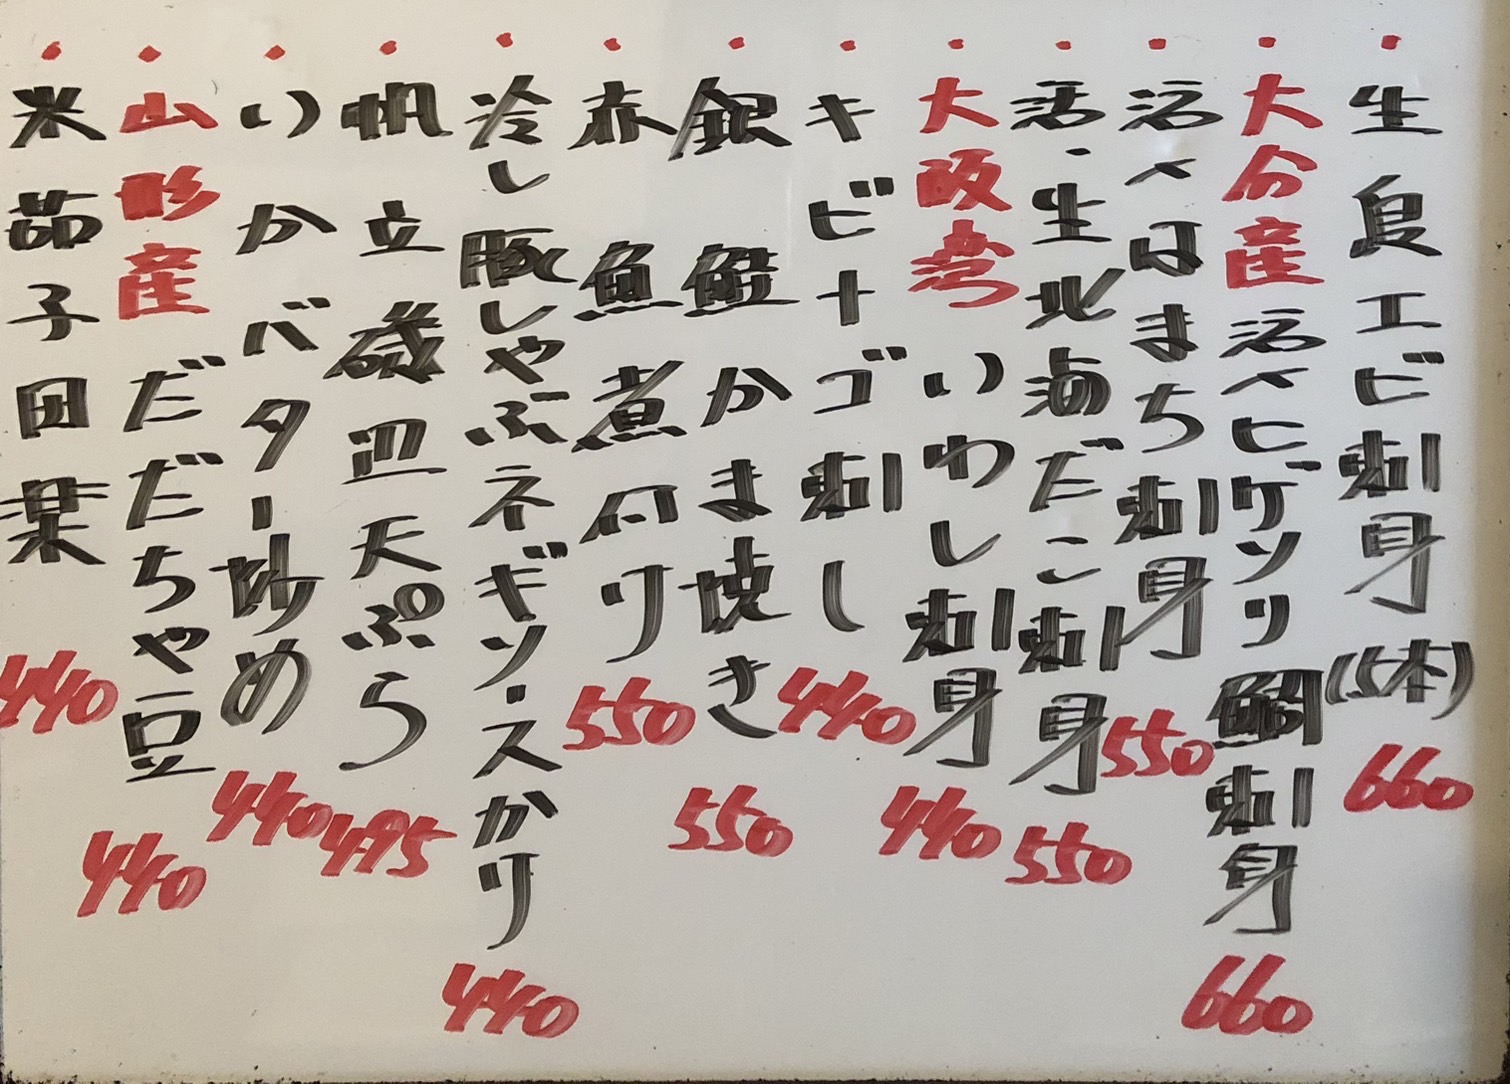 ・生良エビ刺身(5本) 660
・大分産活〆ヒゲソリ鯛刺身 660
・活〆はまち刺身 550
・活・生北海だこ刺身 550
・大阪湾いわし刺身 440
・キビナゴ刺し 440
・銀鮭かま焼き 550
・赤魚煮付け 550
・冷し豚しゃぶネギソースかけ 440
・帆立磯辺天ぷら 495
・いかバター炒め 440
・山形産だだちゃ豆 440
・米茄子田楽 440